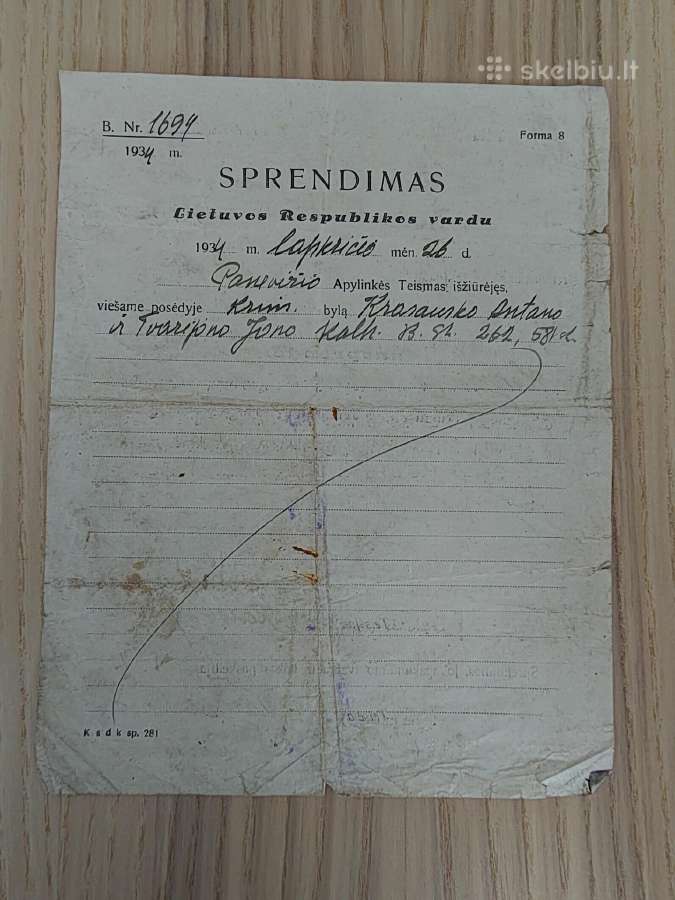 skelbiu.lt
B. Nr. 1694
Forma 8
1934 m.
SPRENDIMAS
Lietuvos Respublikos vardu
1934 m. lapkričio mėn. 26 d.
Panevėžio Apylinkės Teismas, išžiūrėjęs,
viešame posėdyje krim. bylą Krasausko Antano
ir Tvarijono Jono kalt. B. St. 262, 581 
K s d k sp. 281